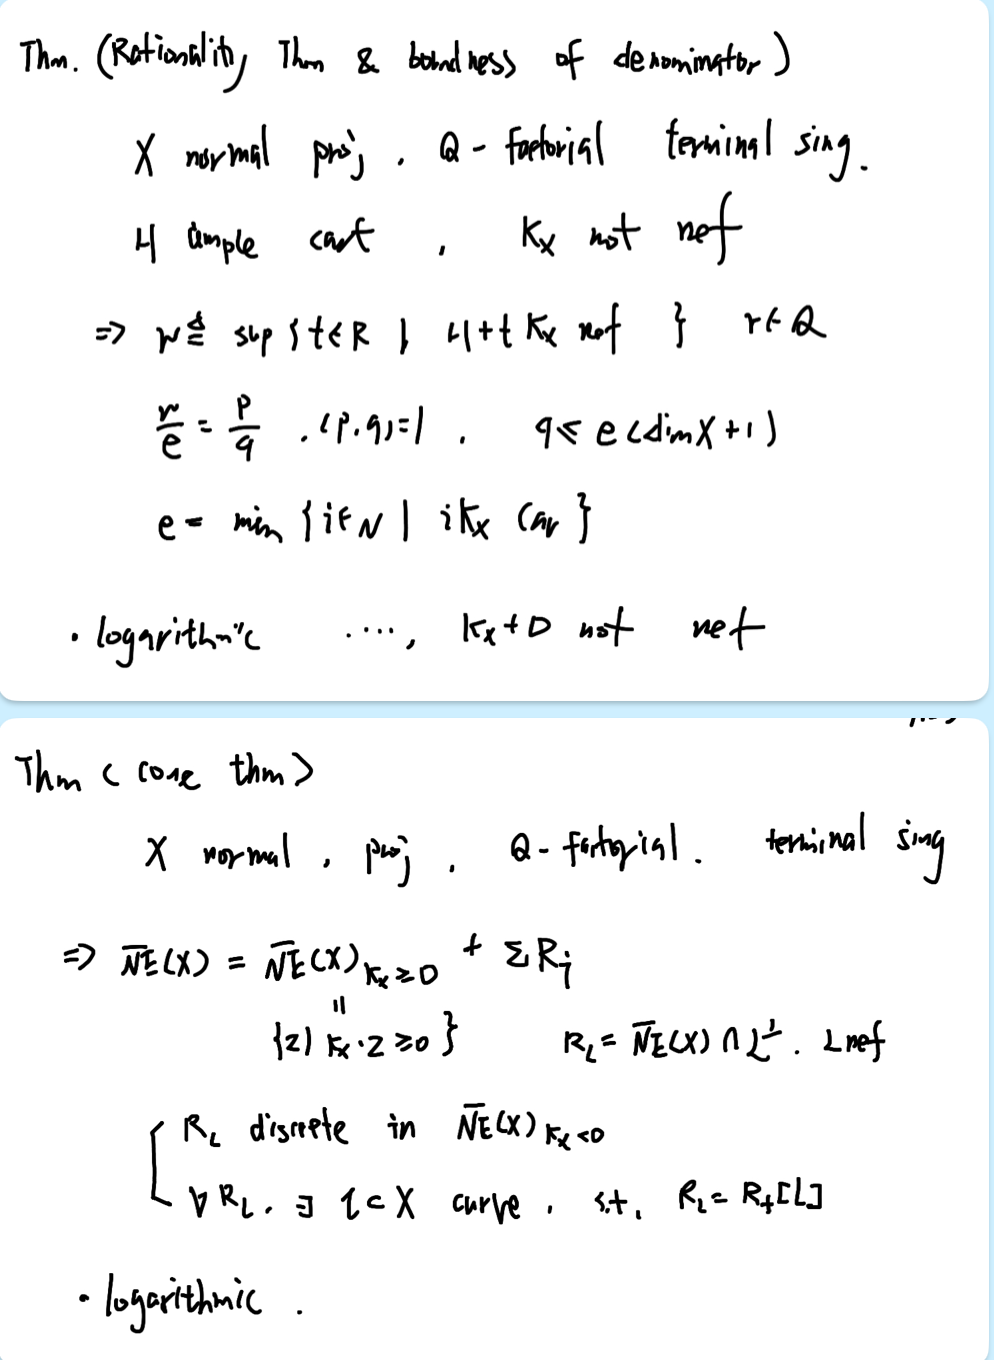 Thm. (Rationality Thm & boundness of denominator)
X normal proj, Q-factorial terminal sing.
H ample cart, Kx not nef
⇒ r ≜ sup {t∈R | H+tKx nef } r∈Q
r/e = p/q , (p,q)=1 , q ≤ e(dimX+1)
e = min {i∈N | iKx Car }
· logarithmic ...., Kx+D not nef
Thm (cone thm)
X normal, proj, Q-factorial. terminal sing
⇒ N̅E̅(X) = N̅E̅(X)Kx≥0 + ΣRj
=
{z| Kx·z≥0} RL = N̅E̅(X)∩L⊥. L nef
RL discrete in N̅E̅(X)Kx<0
∀RL, ∃ l⊂X curve, s.t. RL = R+[L]
· logarithmic.